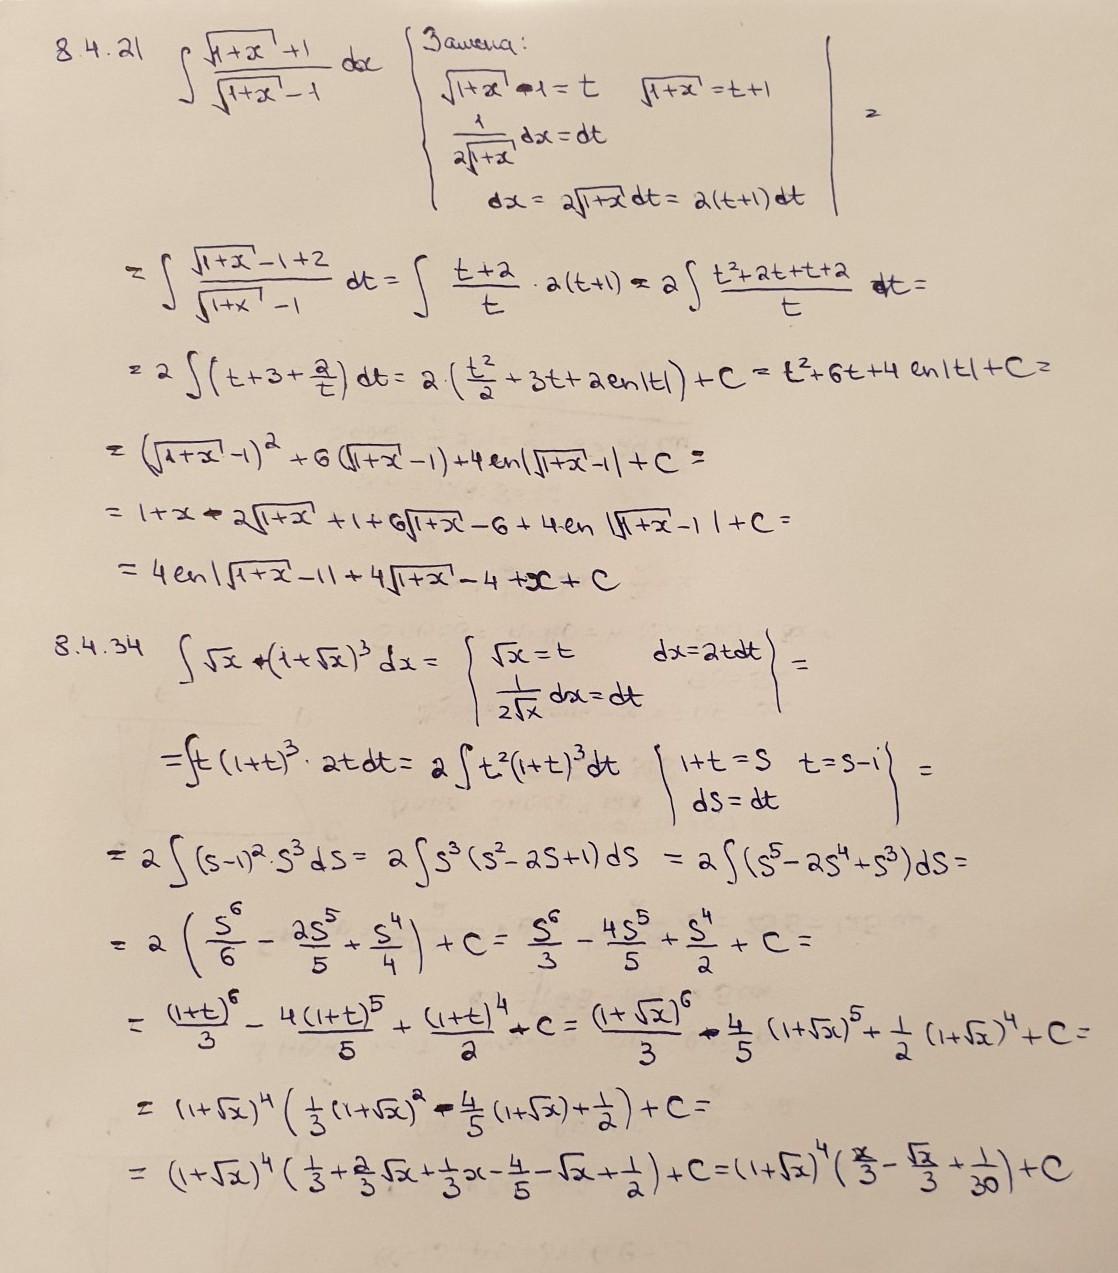 8.4.21 ∫ (√(1+x) +1)/(√(1+x) -1) dx | Замена:
√(1+x) -1 = t √(1+x) = t+1
1/(2√(1+x)) dx = dt | =
dx = 2√(1+x) dt = 2(t+1)dt
= ∫ (√(1+x) -1+2)/(√(1+x) -1) dt = ∫ (t+2)/t · 2(t+1) = 2∫ (t²+2t+t+2)/t dt =
= 2∫(t+3+2/t)dt = 2·(t²/2 + 3t + 2ln|t|) + C = t²+6t+4 ln|t| + C =
= (√(1+x) -1)² + 6(√(1+x) -1) + 4ln|√(1+x) -1| + C =
= 1+x - 2√(1+x) +1+6√(1+x) - 6 + 4·ln |√(1+x) -1| + C =
= 4ln|√(1+x) -1| + 4√(1+x) - 4 + x + C
8.4.34 ∫ √x ·(1+√x)³ dx = | √x = t dx = 2tdt | =
1/(2√x) dx = dt
= ∫t(1+t)³ · 2tdt = 2∫t²(1+t)³dt | 1+t = S t = S-1 | =
dS = dt
= 2∫(S-1)²·S³dS = 2∫S³(S²-2S+1)dS = 2∫(S⁵-2S⁴+S³)dS =
= 2 (S⁶/6 - 2S⁵/5 + S⁴/4) + C = S⁶/3 - 4S⁵/5 + S⁴/2 + C =
= (1+t)⁶/3 - 4(1+t)⁵/5 + (1+t)⁴/2 + C = (1+√x)⁶/3 - 4/5 (1+√x)⁵ + 1/2 (1+√x)⁴ + C =
= (1+√x)⁴(1/3 (1+√x)² - 4/5 (1+√x) + 1/2) + C =
= (1+√x)⁴(1/3 + 2/3 √x + 1/3 x - 4/5 - √x + 1/2) + C = (1+√x)⁴(x/3 - √x/3 + 1/30) + C